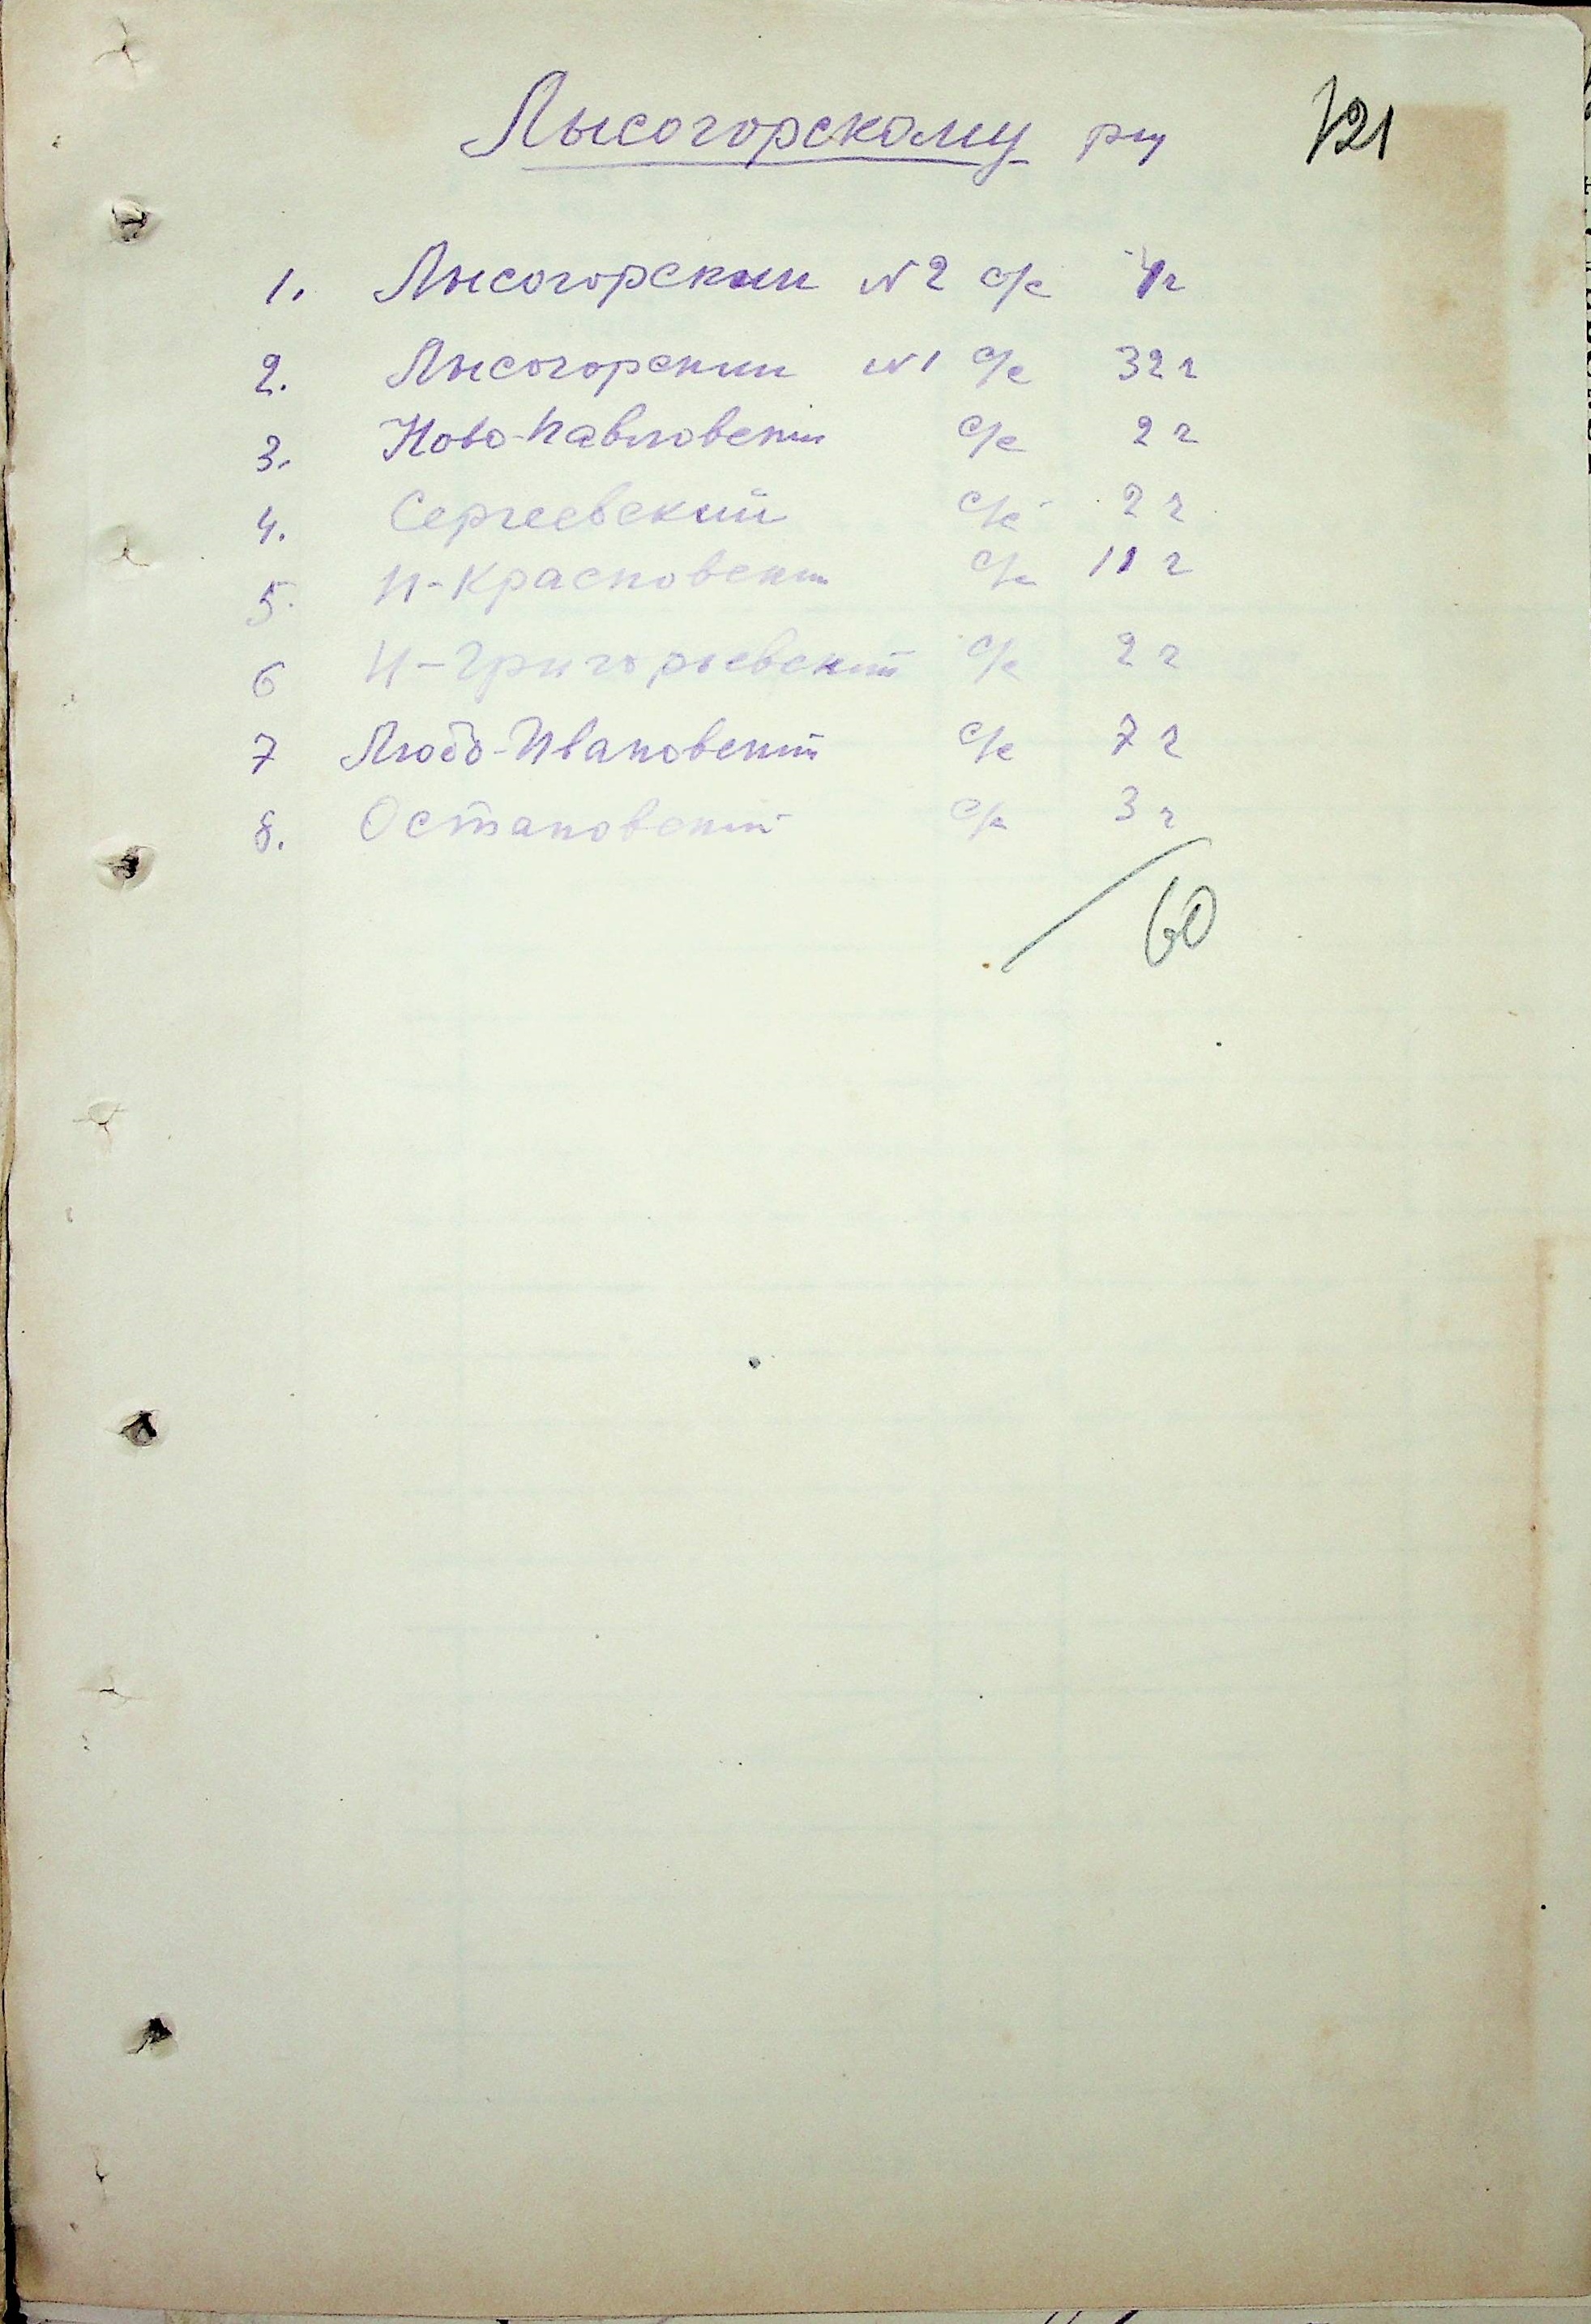 Лысогорскому р-ну 121
1. Лысогорский №2 с/с 1 г
2. Лысогорский №1 с/с 32 г
3. Ново-Павловский с/с 2 г
4. Сергеевский с/с 2 г
5. Н-Красновский с/с 11 г
6 Н-Григорьевский с/с 2 г
7 Любо-Ивановский с/с 7 г
8. Остановский с/с 3 г
60